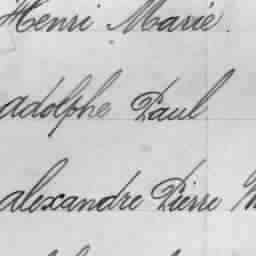 Henri Marie.
adolphe Paul
alexandre Pierre